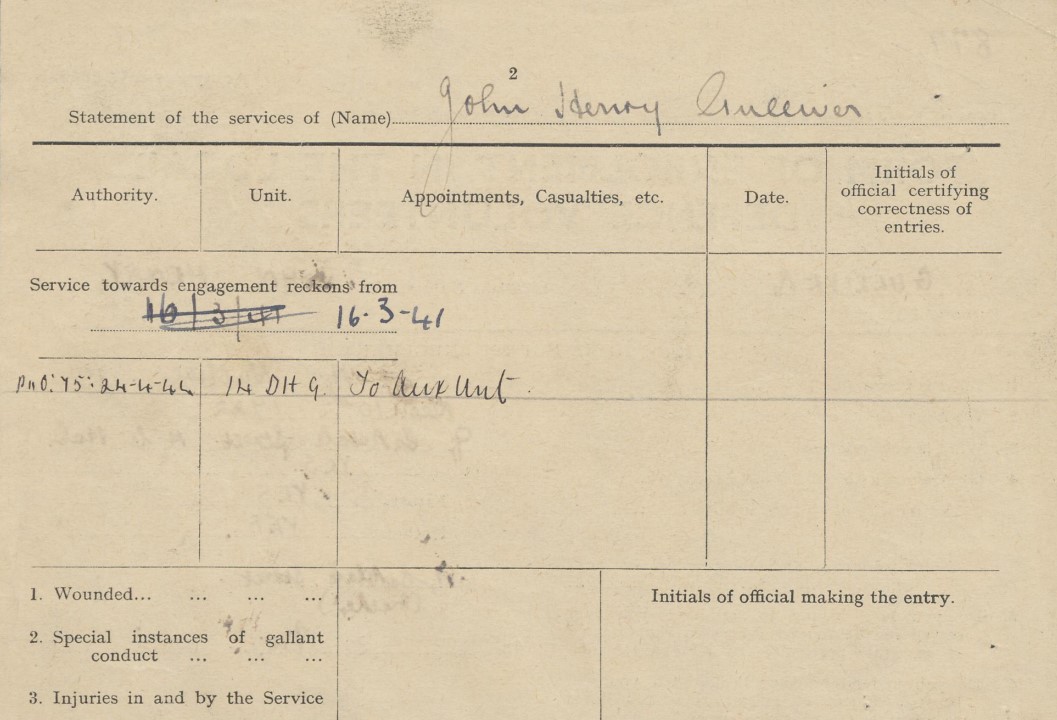 2
Statement of the services of (Name) John Henry Gulliver
Authority. Unit. Appointments, Casualties, etc. Date. Initials of official certifying correctness of entries.
Service towards engagement reckons from
16/3/41 16.3-41
PnO: 75: 24-4-44 14 DHG. To Aux Unit.
1. Wounded... ... ... ...
Initials of official making the entry.
2. Special instances of gallant
conduct ... ... ...
3. Injuries in and by the Service